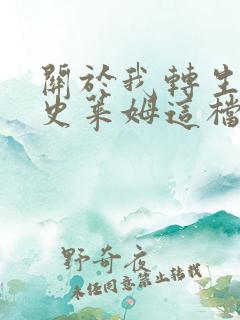 關於我轉生
史萊姆這檔
野奇夜
未經同意禁止轉載